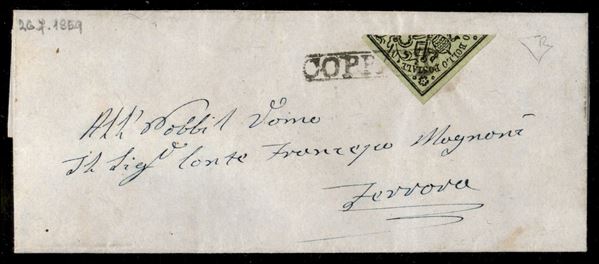 26.7.1859
COPP
BOLLO POSTALE
All' Nobbil Uomo
Il Sigr Conte Francesco Magnoni
Ferrara